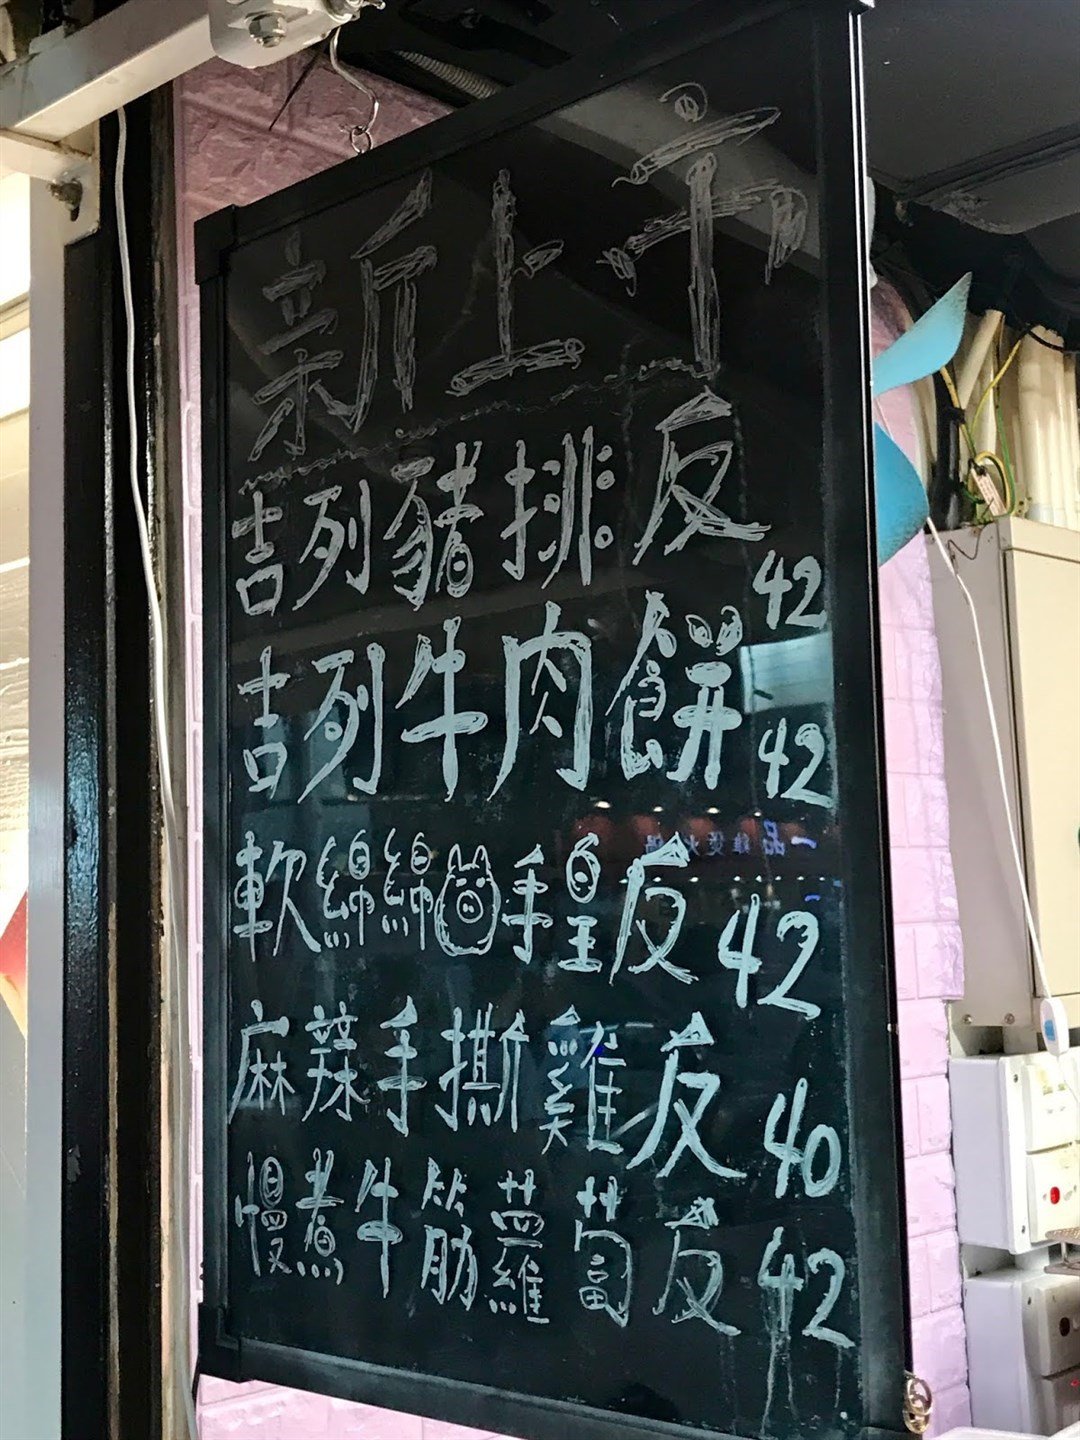 新上市
吉列豬排反 42
吉列牛肉餅 42
軟綿綿手皇反 42
麻辣手撕雞反 40
慢煮牛筋蘿蔔反 42